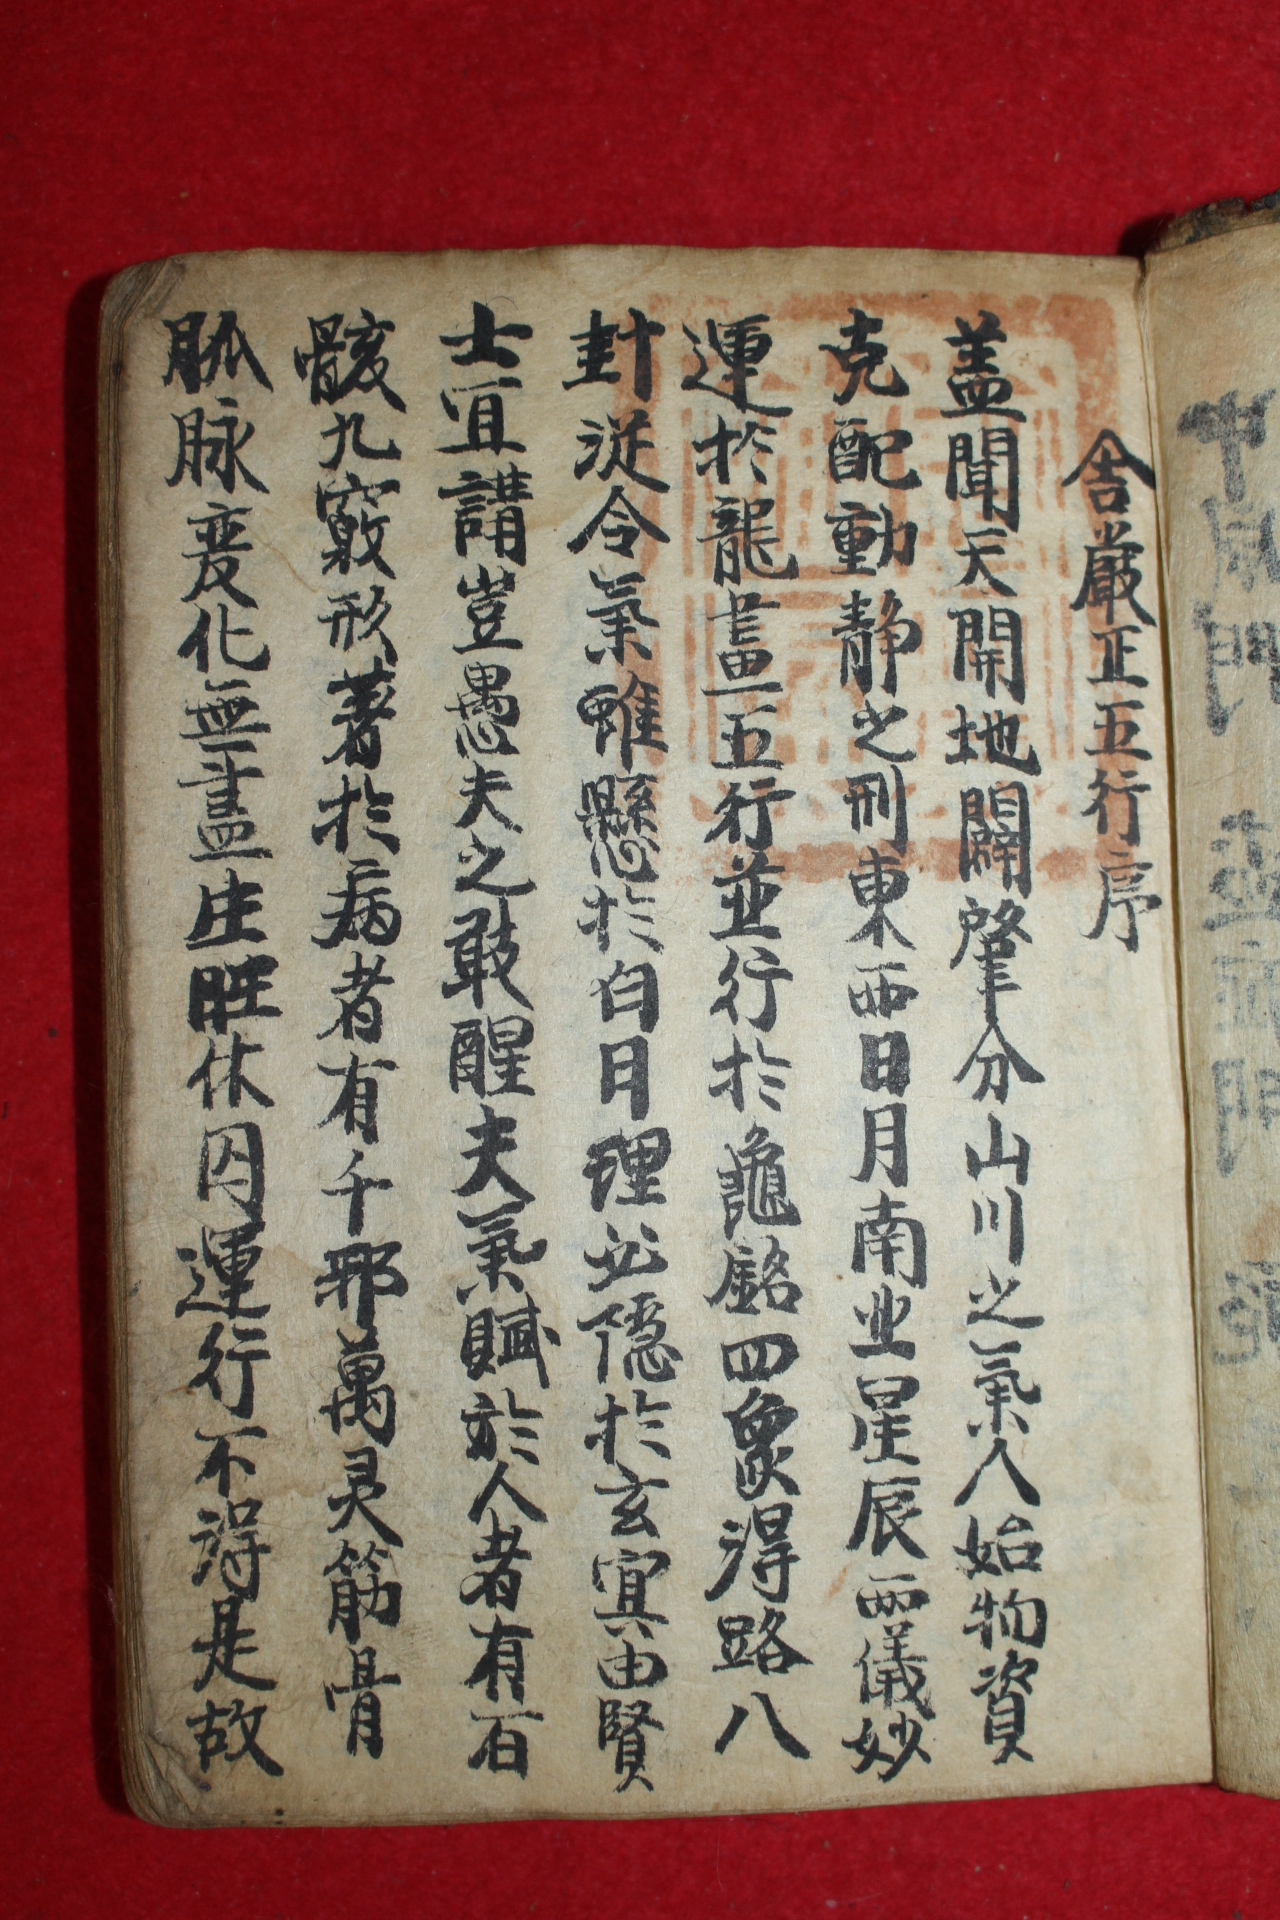 舍嚴正五行序
盖聞天開地闢肇分山川之氣人始物資
克配動静之刑東西日月南北星辰兩儀妙
運於龍畫五行並行於龜銘四象得路八
封從令氣雖懸於白日理必隱於玄宜由賢
士宜講豈愚夫之敢醒夫氣賦於人者有百
骸九竅形著於病者有千邪萬灵筋骨
脉変化無盡生旺休囚運行不得是故